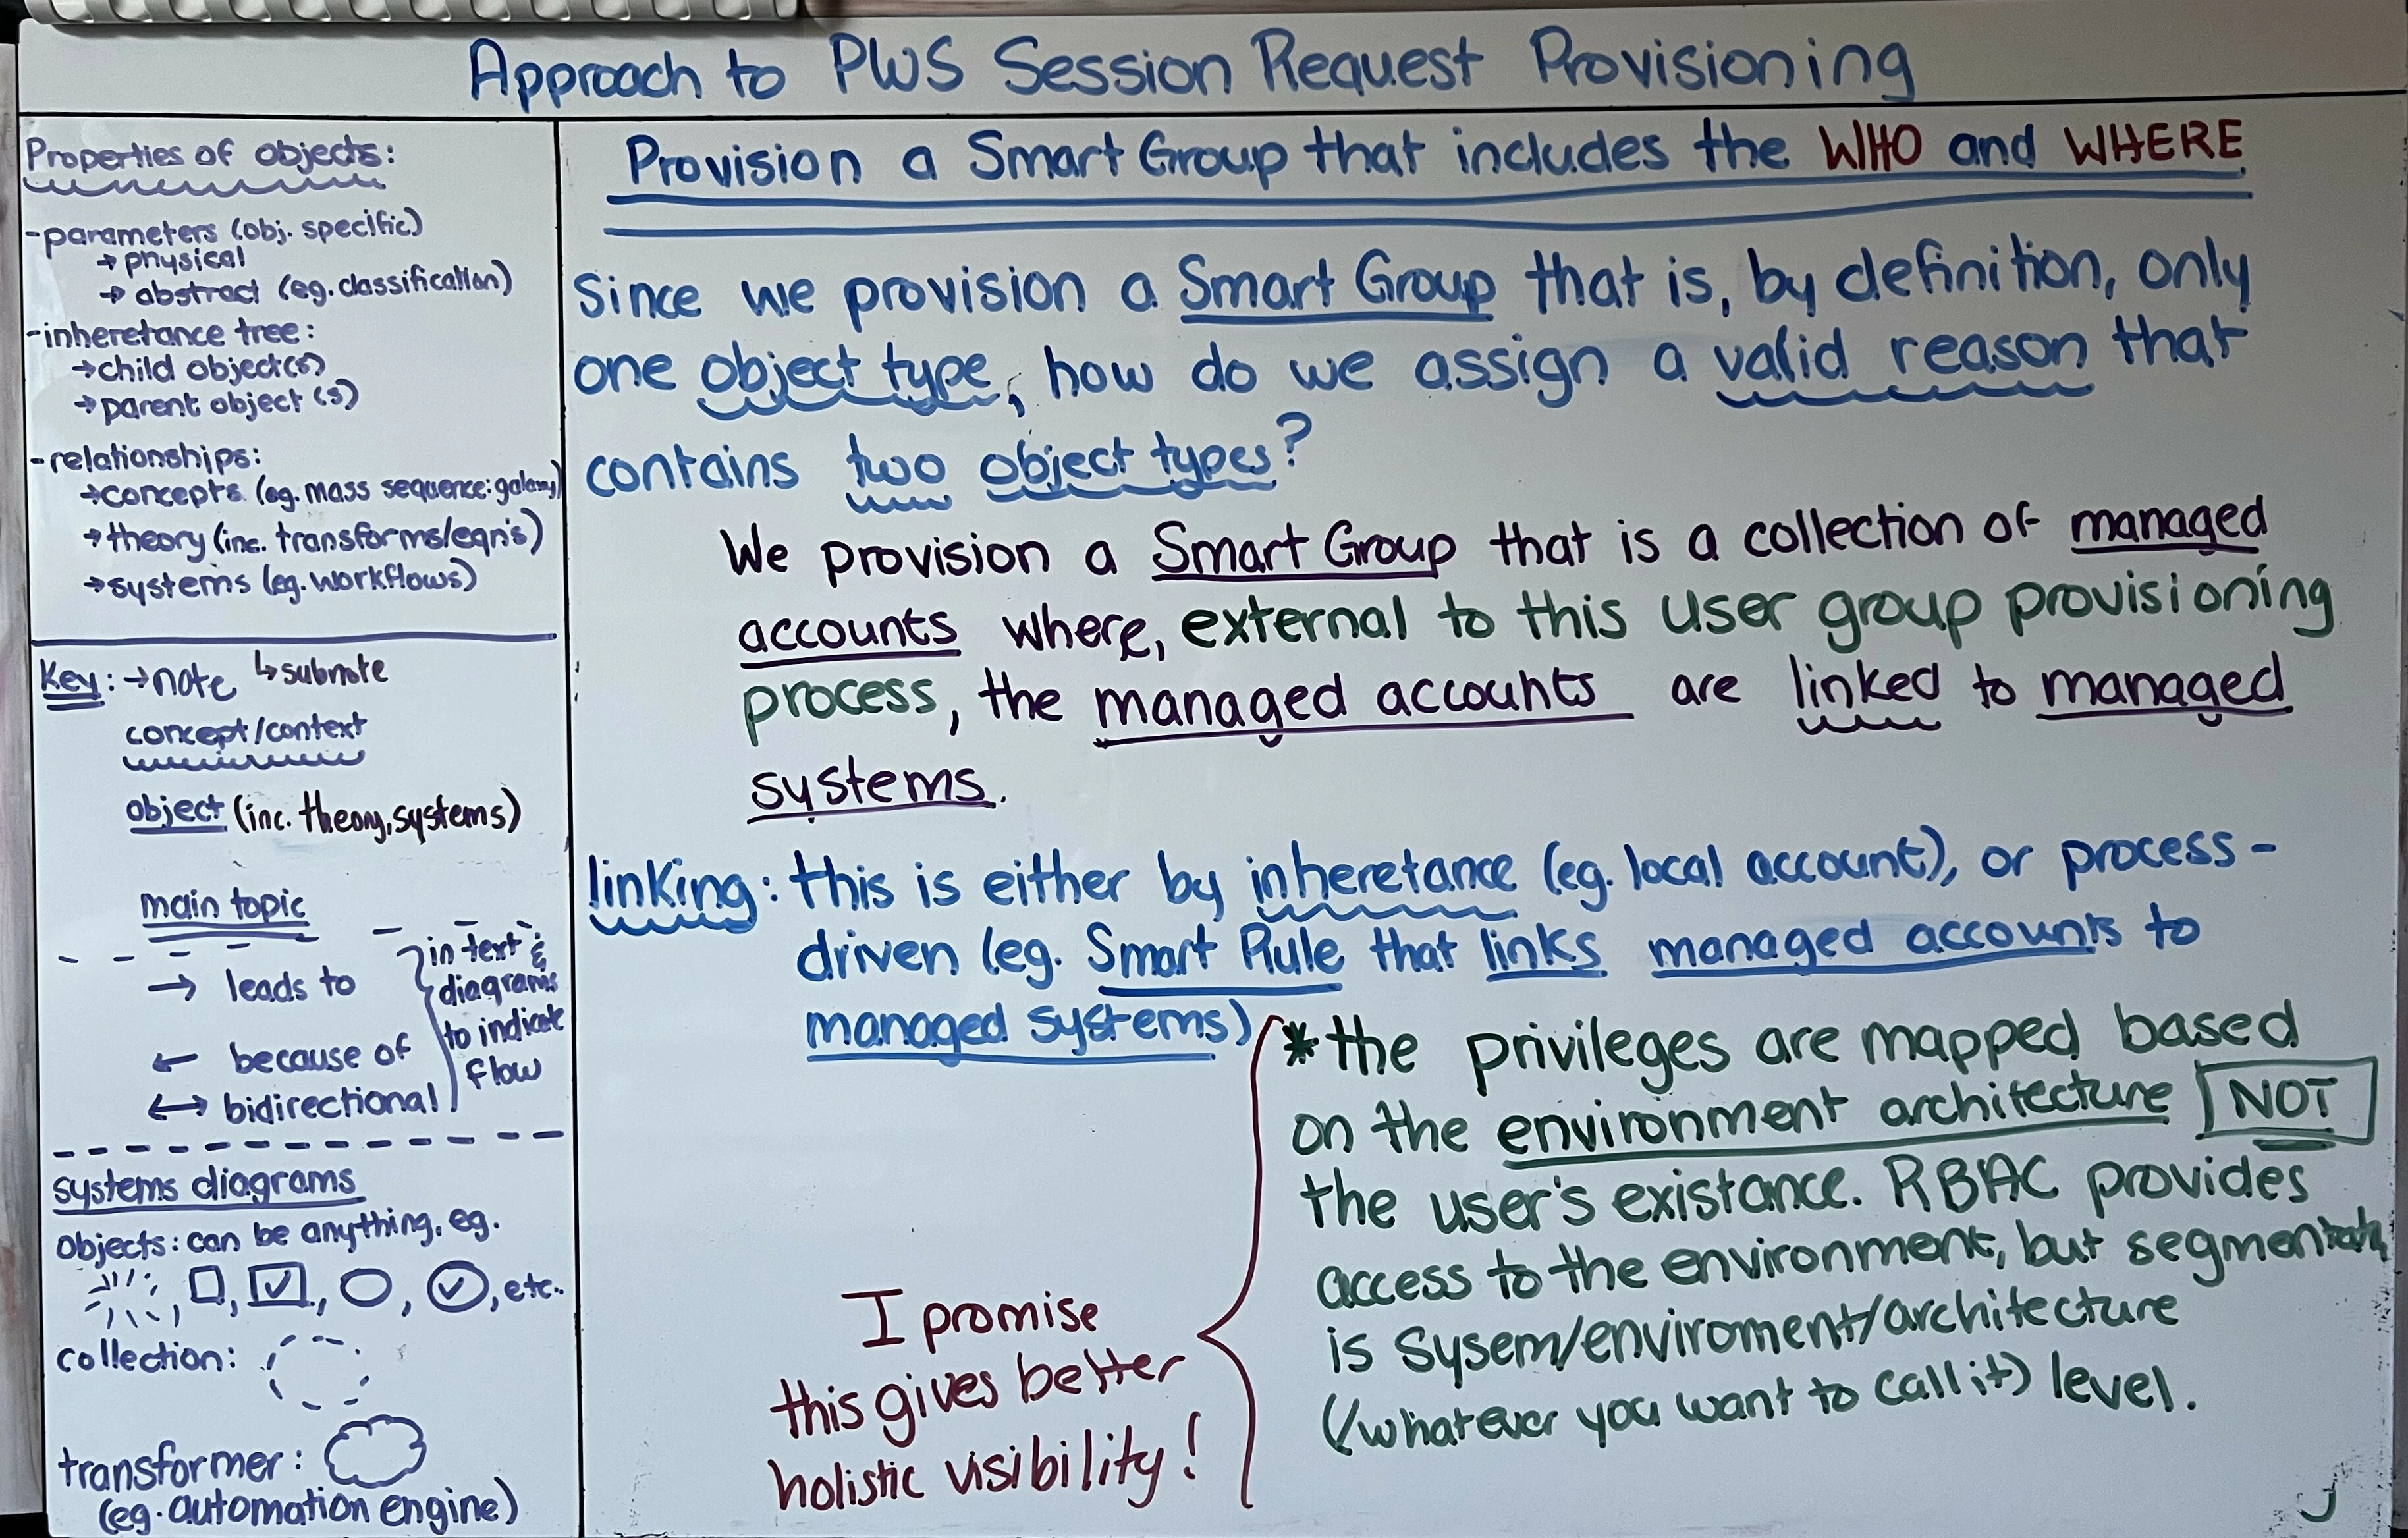 Approach to PWS Session Request Provisioning
Properties of objects:
-parameters (obj. specific)
→ physical
→ abstract (eg. classification)
-inheretance tree:
→child object(s)
→parent object(s)
-relationships:
→concepts (eg. mass sequence: galaxy)
→theory (inc. transforms/eqn's)
→systems (eg. workflows)
Key: → note ↳ subnote
concept/context
object (inc. theory, systems)
main topic
→ leads to
← because of
↔ bidirectional
in text &
diagrams
to indicate
flow
systems diagrams
objects: can be anything, eg.
, , , , , etc..
collection:
transformer:
(eg. automation engine)
Provision a Smart Group that includes the WHO and WHERE
Since we provision a Smart Group that is, by definition, only
one object type, how do we assign a valid reason that
contains two object types?
We provision a Smart Group that is a collection of managed
accounts where, external to this user group provisioning
process, the managed accounts are linked to managed
systems.
linking: this is either by inheretance (eg. local account), or process-
driven (eg. Smart Rule that links managed accounts to
managed systems)
*the privileges are mapped based
on the environment architecture NOT
the user's existance. RBAC provides
access to the environment, but segmentation
is Sysem/enviroment/architecture
(/whatever you want to call it) level.
I promise
this gives better
holistic visibility!